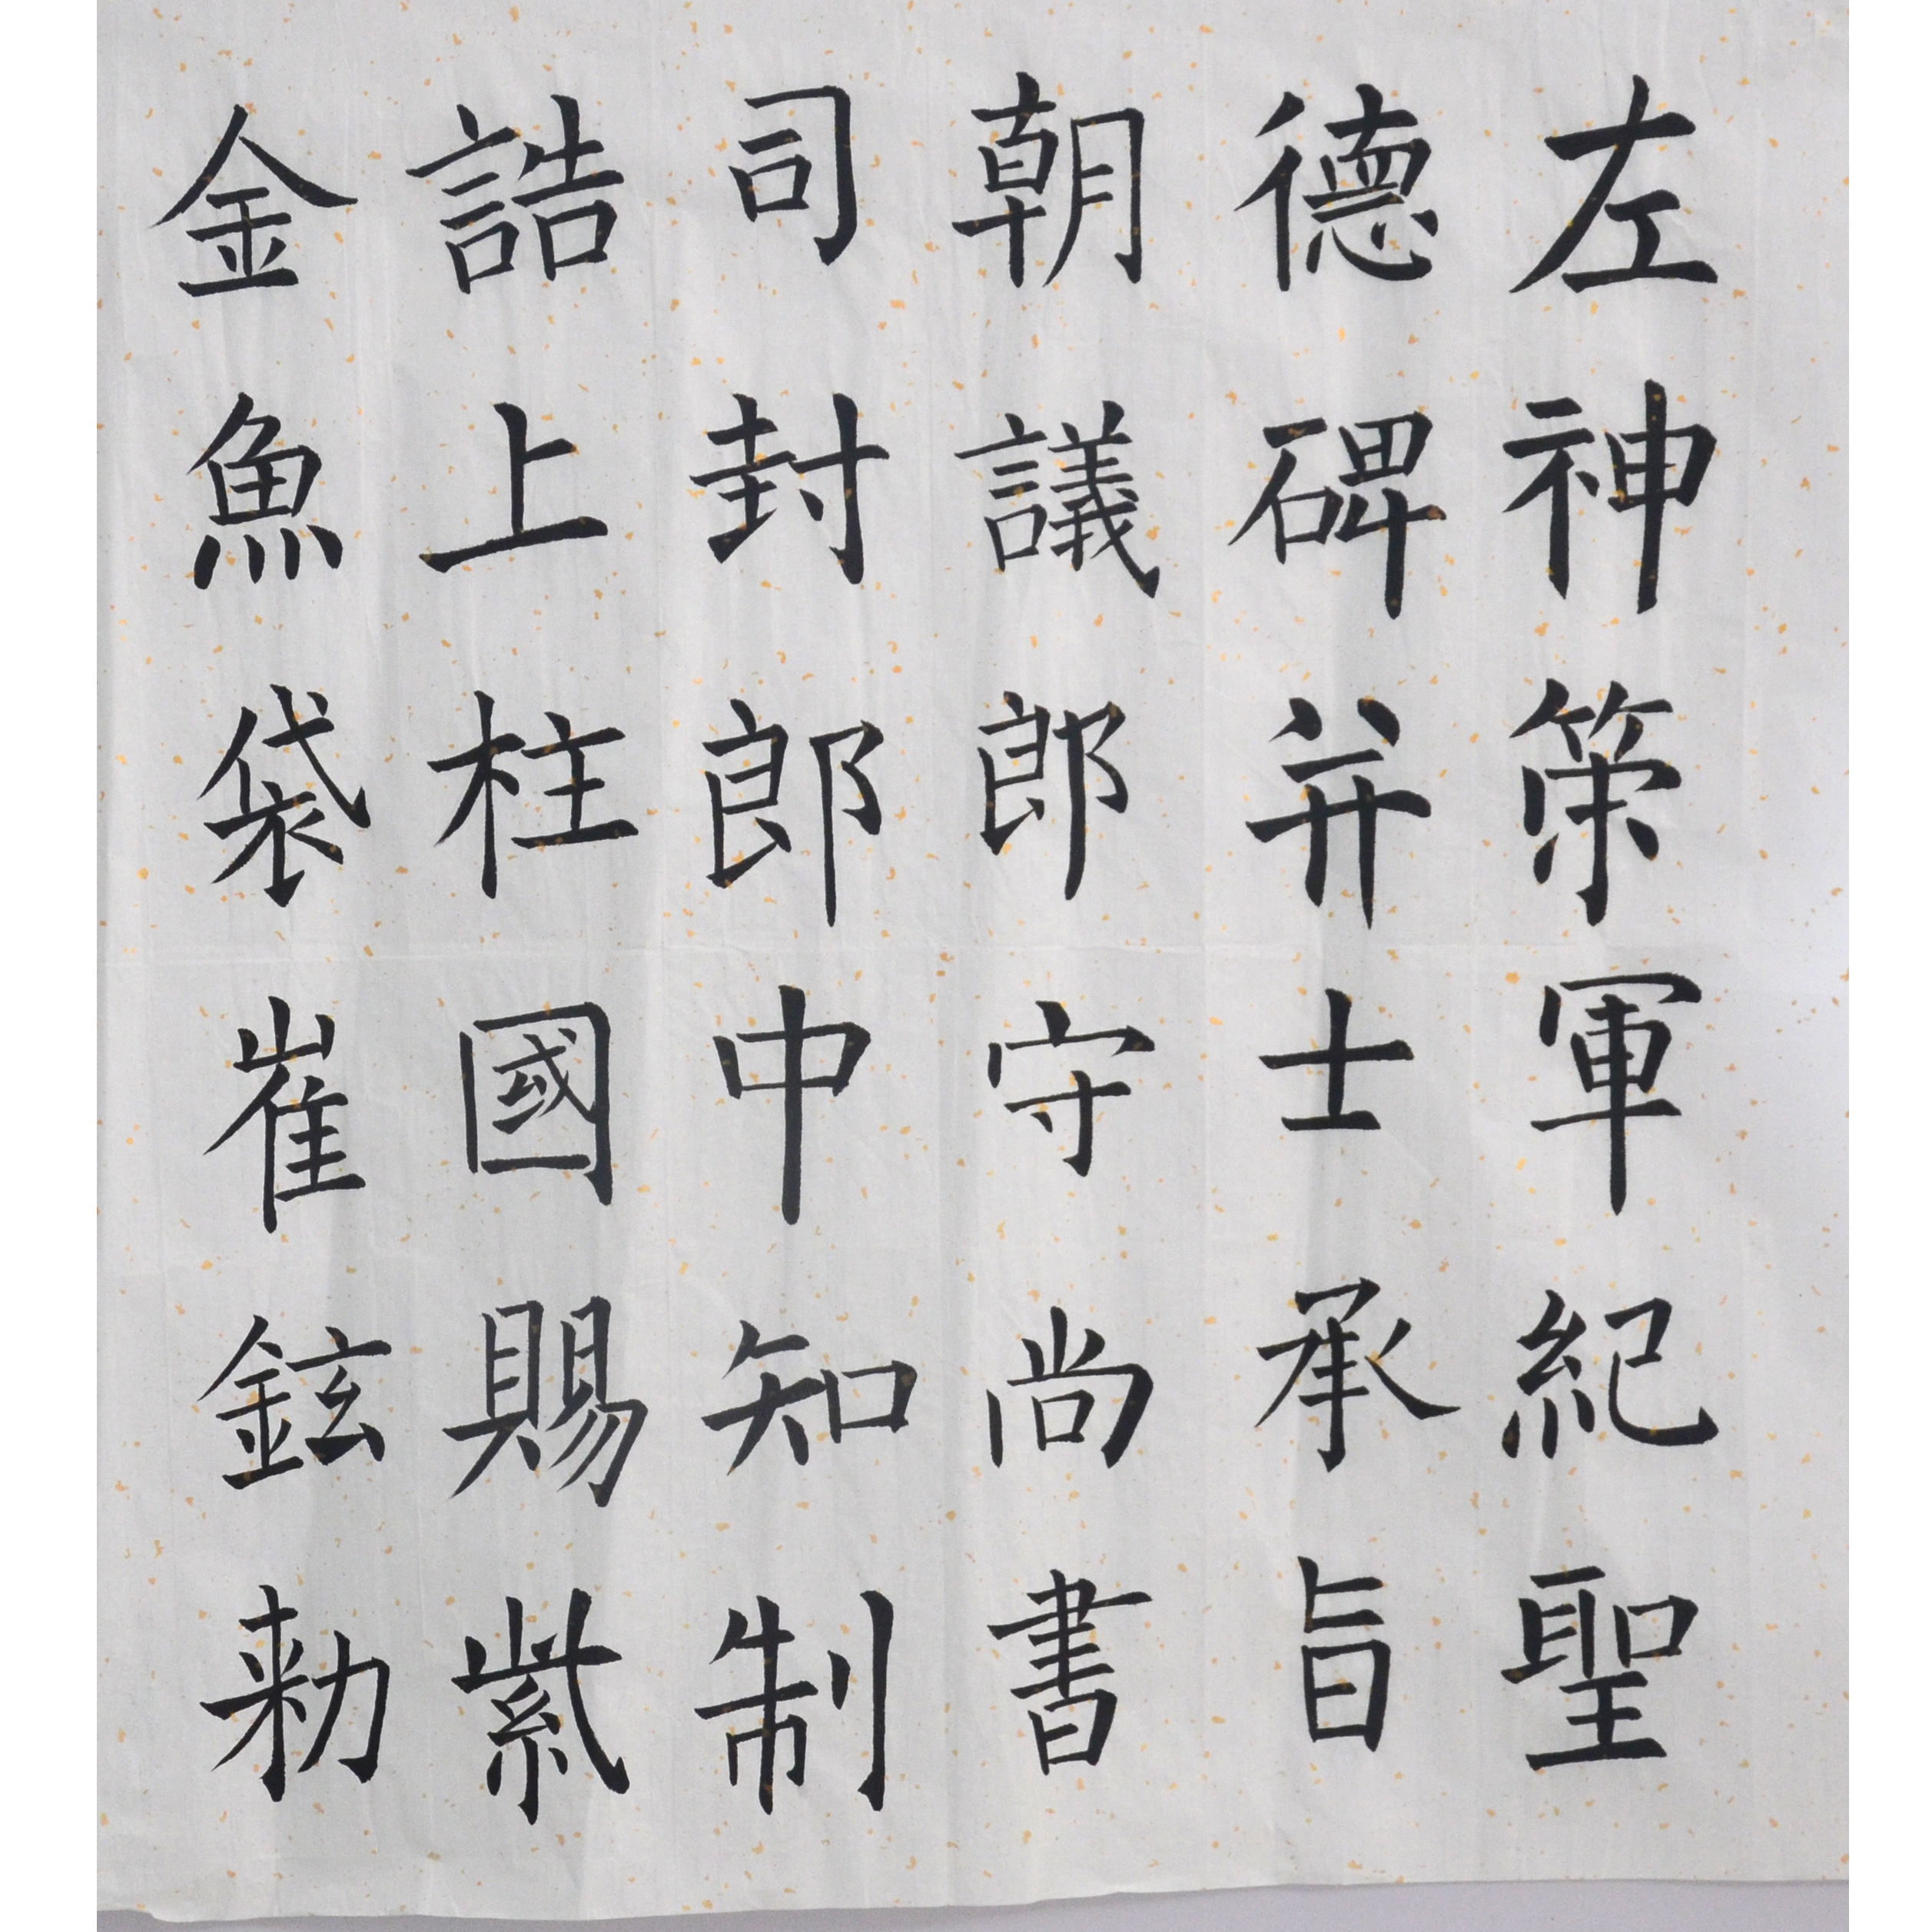 左神策軍紀聖
德碑并士承旨
朝議郎守尚書
司封郎中知制
誥上柱國賜紫
金魚袋崔鉉勑